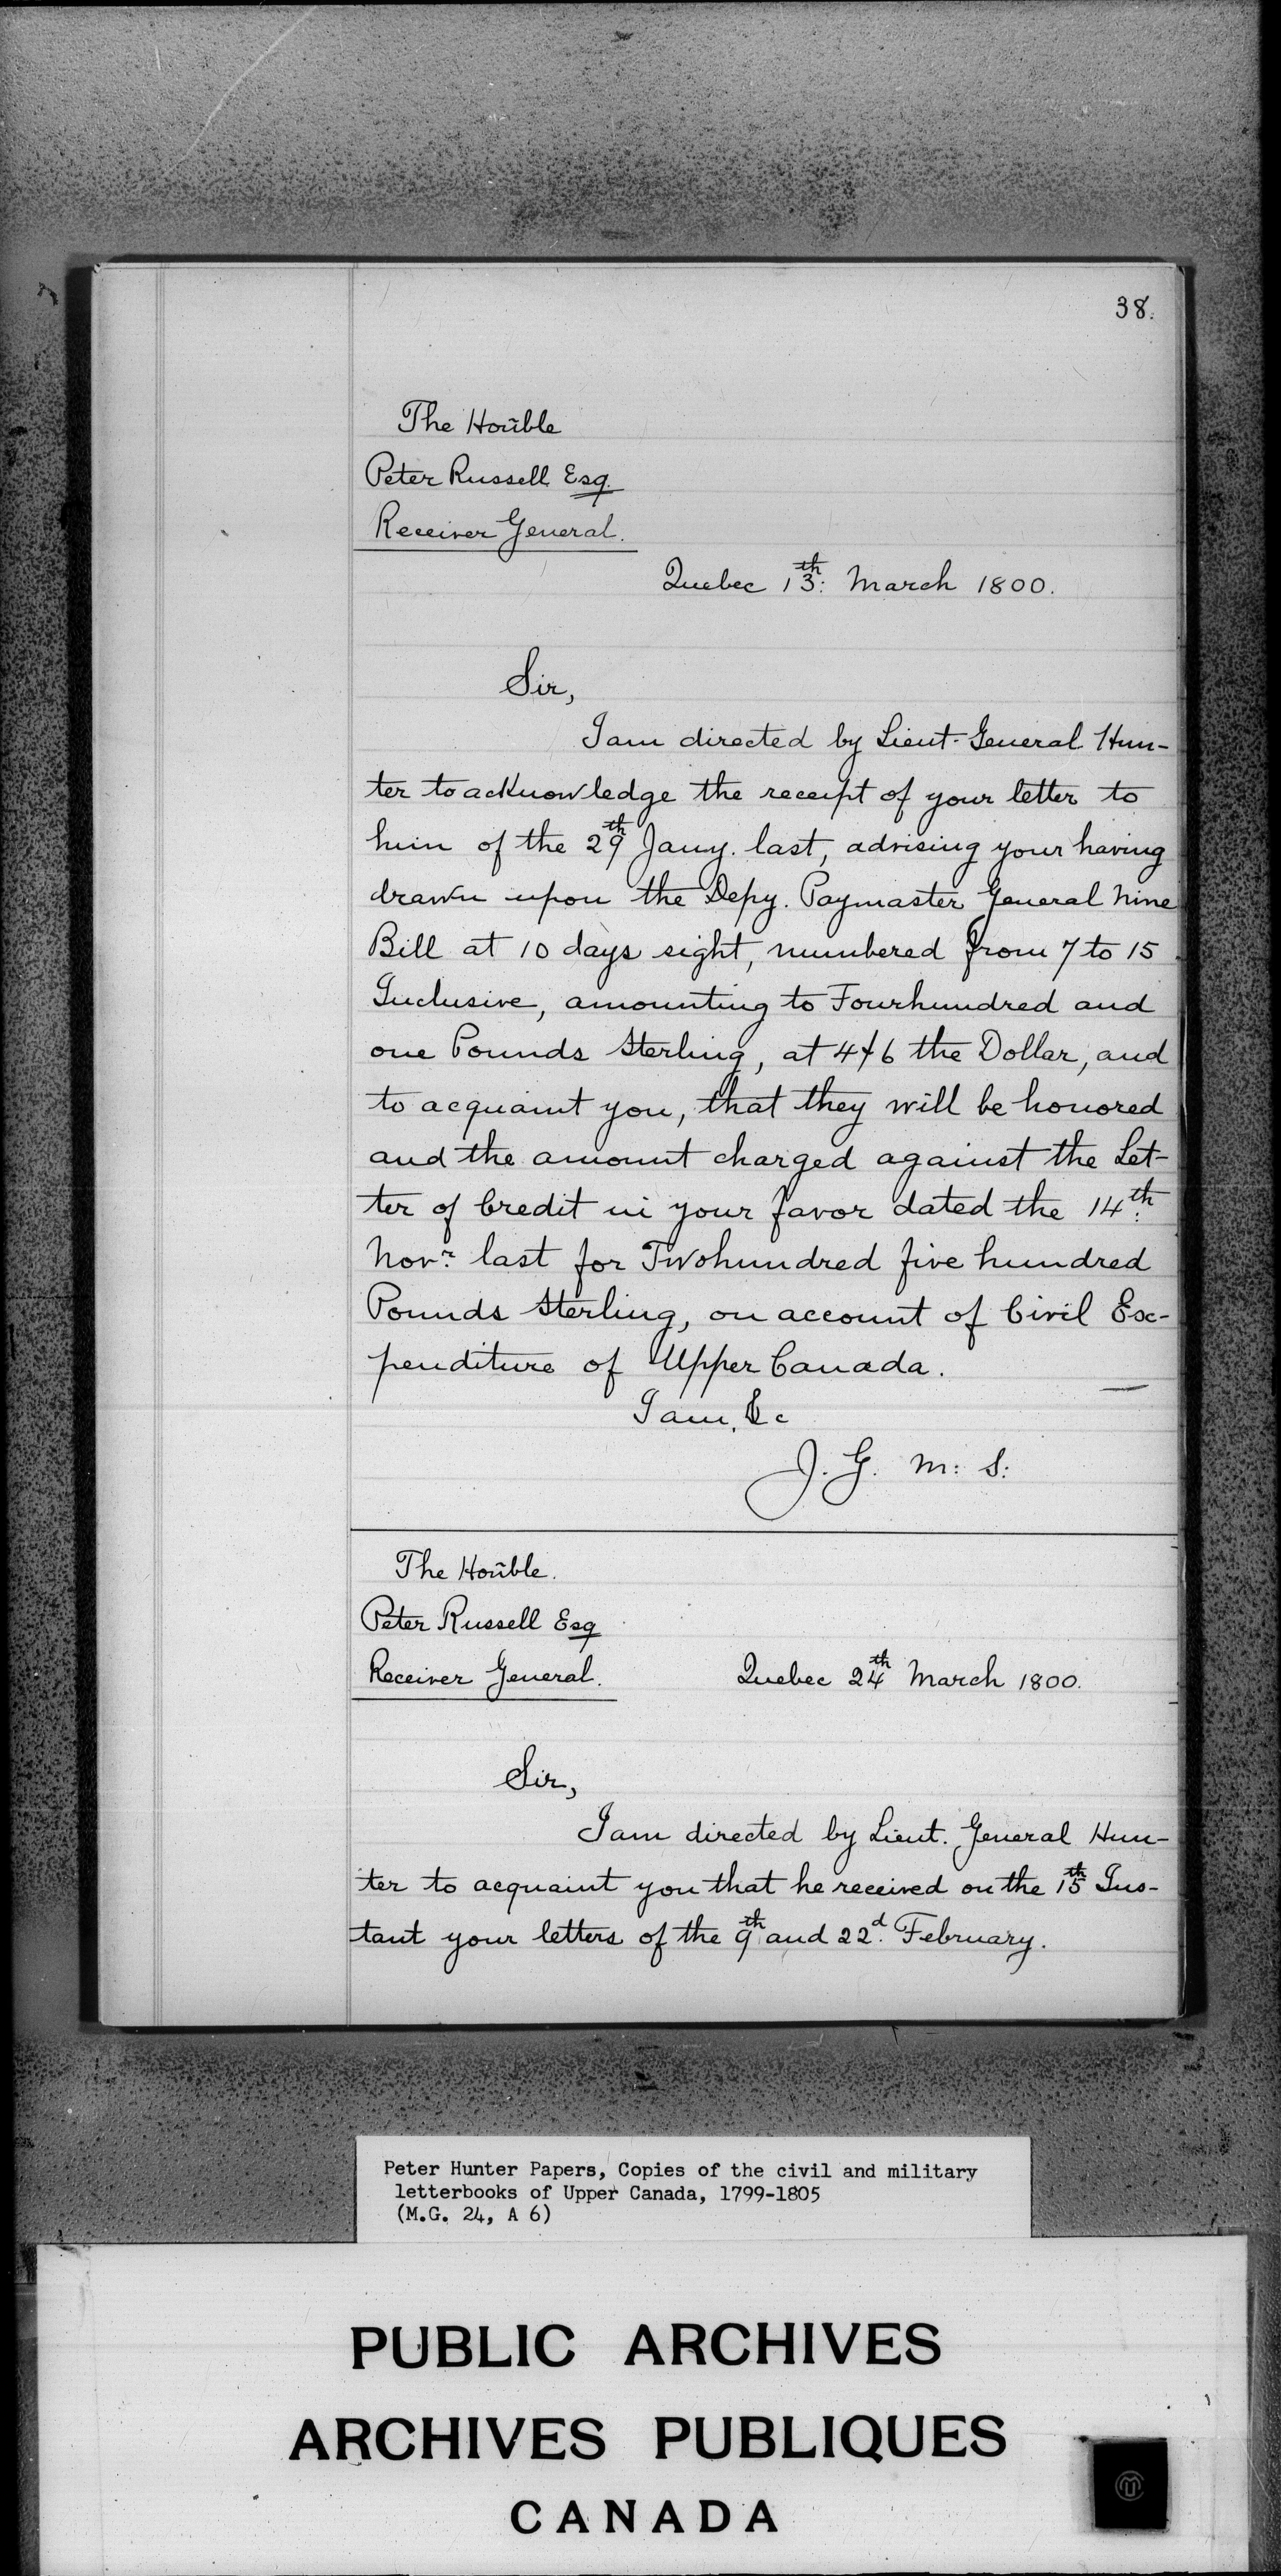 38.
The Hoñble
Peter Russell Esq.
Receiver General.
Quebec 13th: March 1800.
Sir,
I am directed by Lieut. General Hun-
ter to acknowledge the receipt of your letter to
him of the 29th Jany. last, advising your having
drawn upon the Depy. Paymaster General Nine
Bill at 10 days sight, numbered from 7 to 15
Inclusive, amounting to Fourhundred and
one Pounds Sterling, at 4/6 the Dollar, and
to acquaint you, that they will be honored
and the amount charged against the Let-
ter of Credit in your favor dated the 14th.
Novr. last for Twohundred five hundred
Pounds Sterling, on account of Civil Ex-
penditure of Upper Canada.
I am, &c
J. G. M: S:
The Hoñble.
Peter Russell Esq
Receiver General.
Quebec 24th March 1800.
Sir,
I am directed by Lieut. General Hun-
ter to acquaint you that he received on the 15th Ins-
tant your letters of the 9th and 22d. February.
Peter Hunter Papers, Copies of the civil and military
letterbooks of Upper Canada, 1799-1805
(M.G. 24, A 6)
PUBLIC ARCHIVES
ARCHIVES PUBLIQUES
CANADA